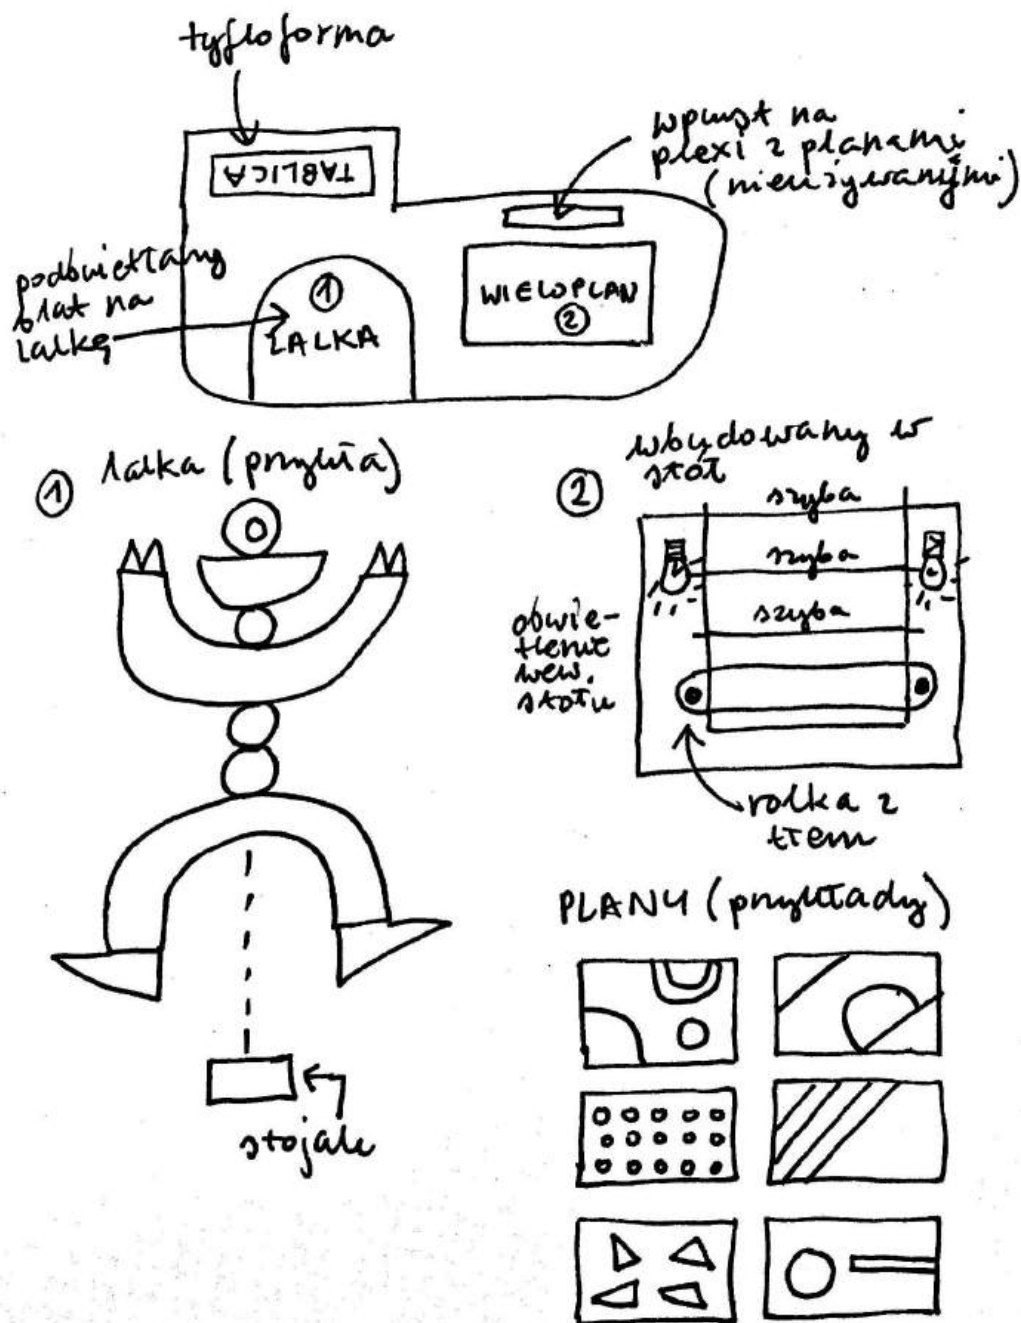 tyfloforma
wpust na
plexi z planami
(nieużywanymi)
TABLICA
podświetlany
blat na
lalkę
①
LALKA
WIELOPLAN
②
① lalka (przykła)
② wbudowany w
stół
szyba
szyba
szyba
oświe-
tlenie
wew.
stołu
rolka z
tłem
stojak
PLANY (przykłady)